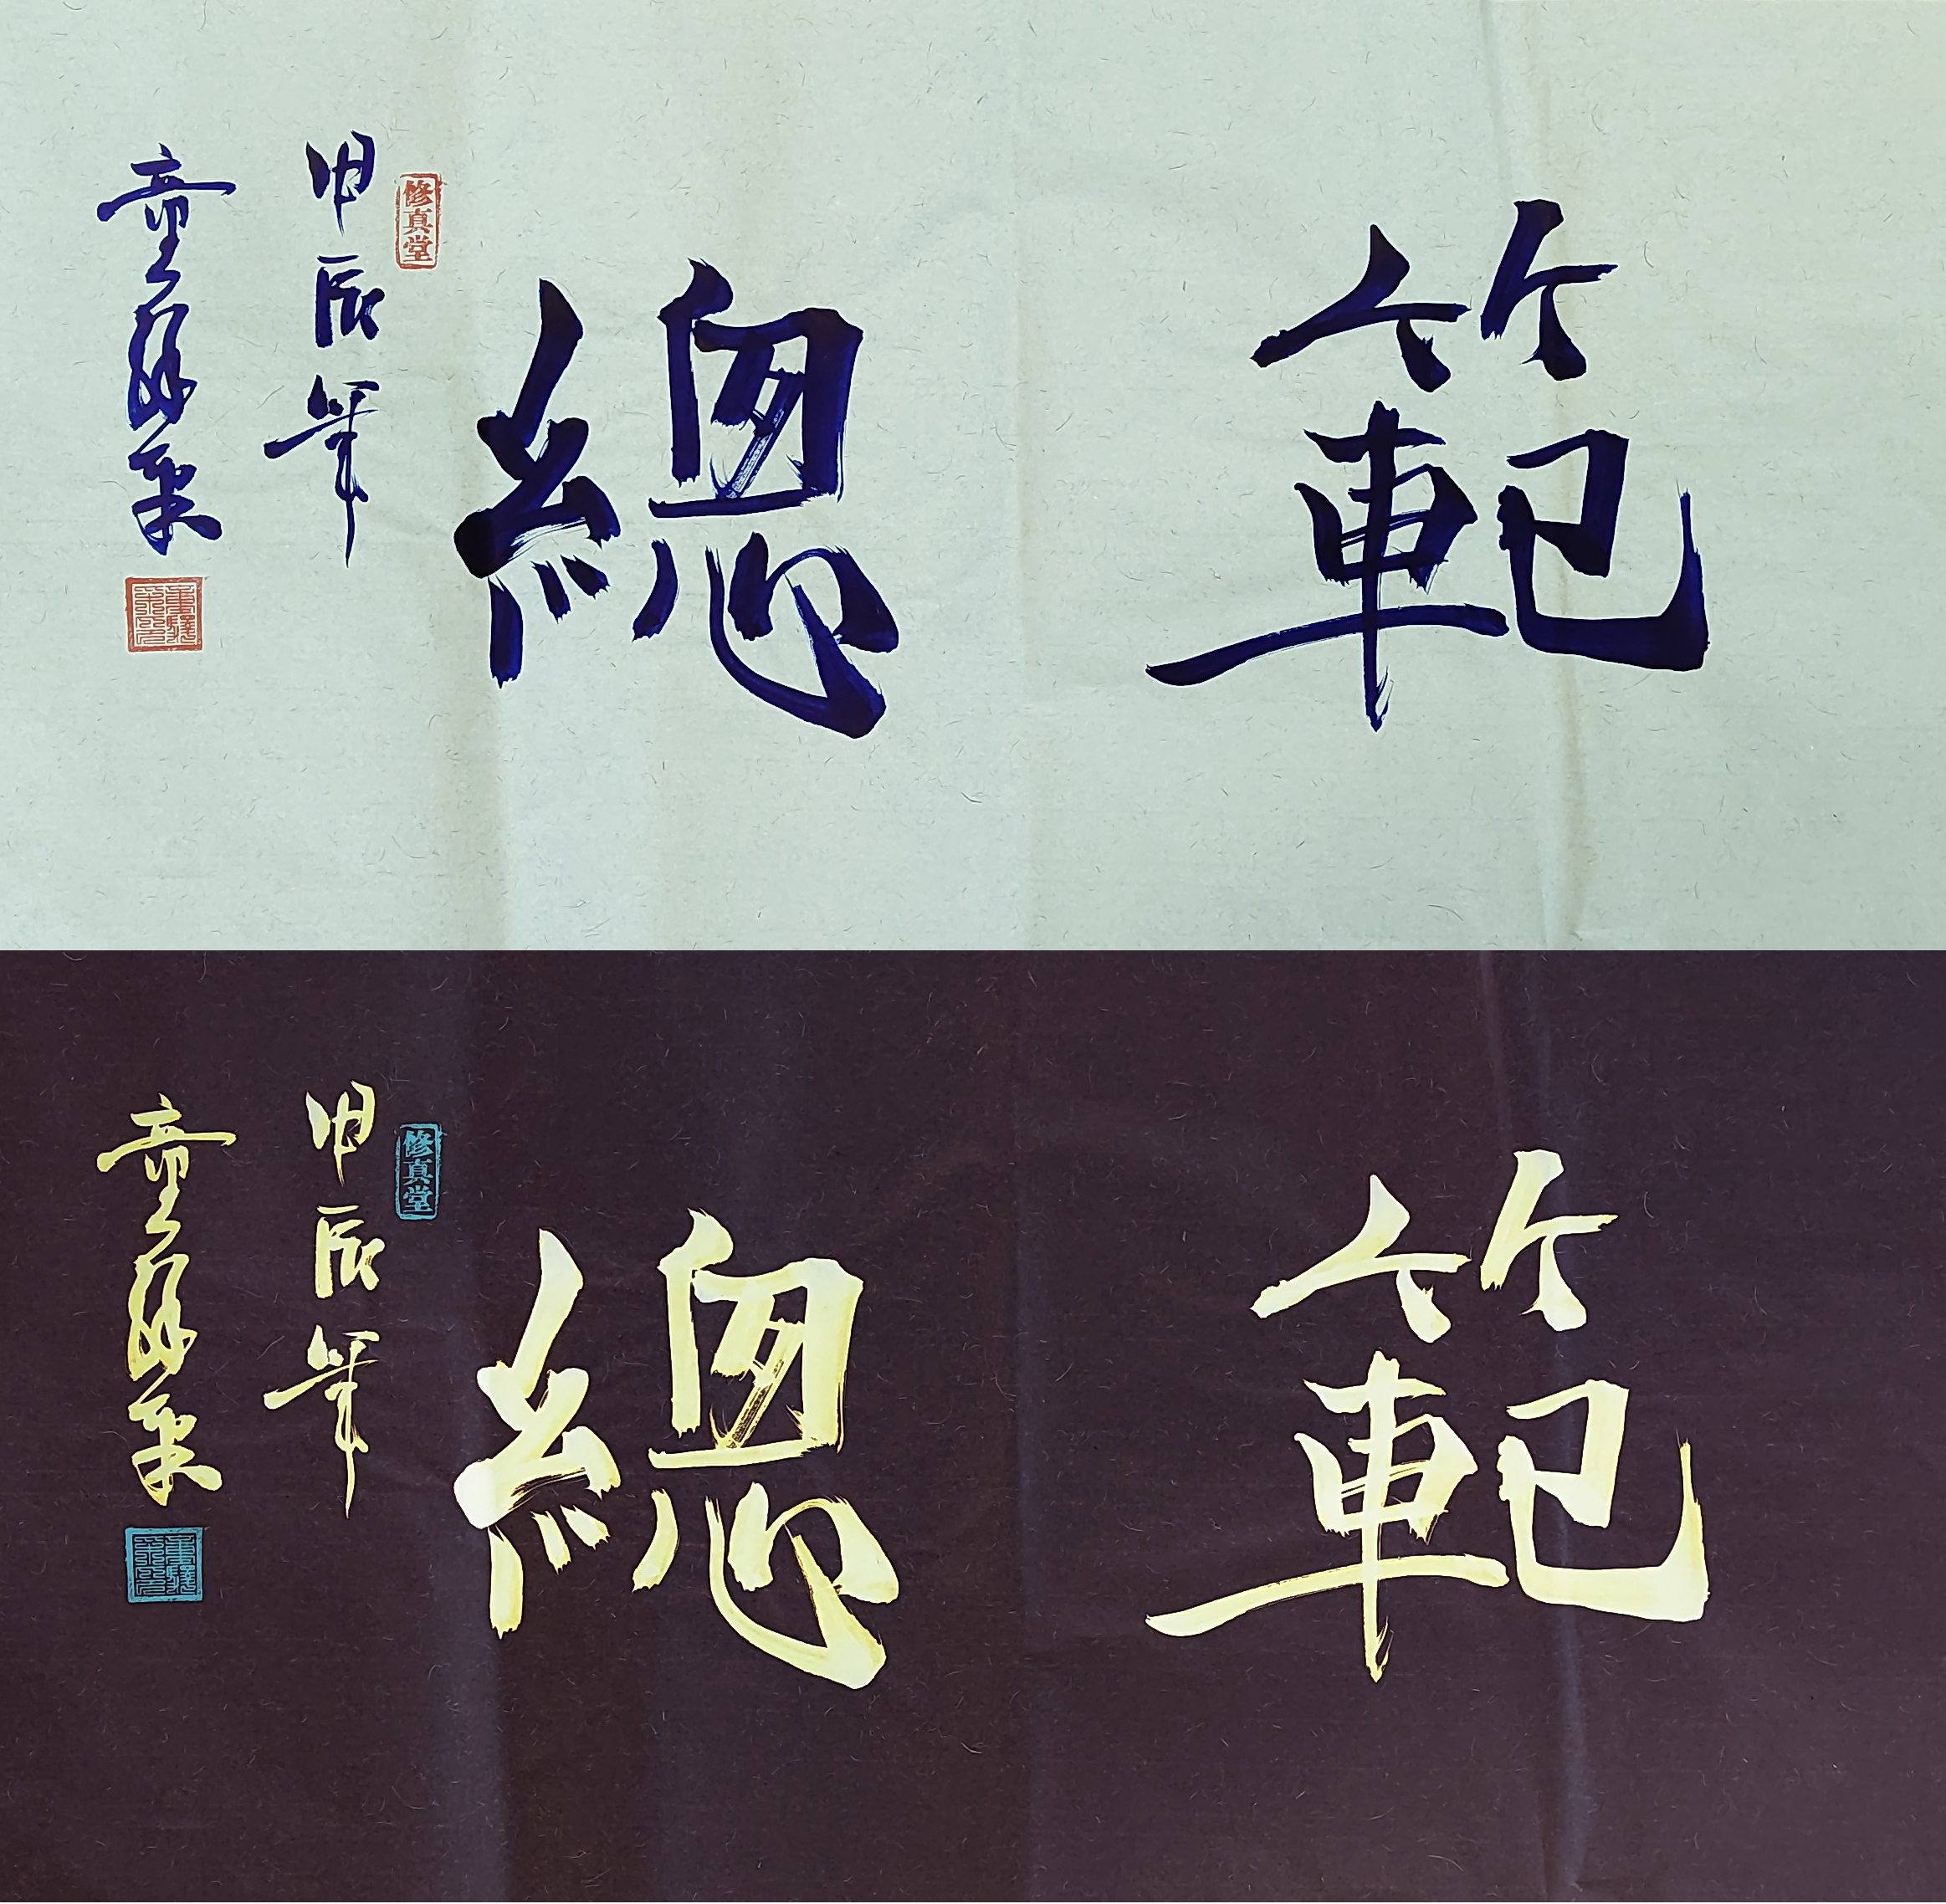 範總
修真堂
甲辰年
童
範總
修真堂
甲辰年
童